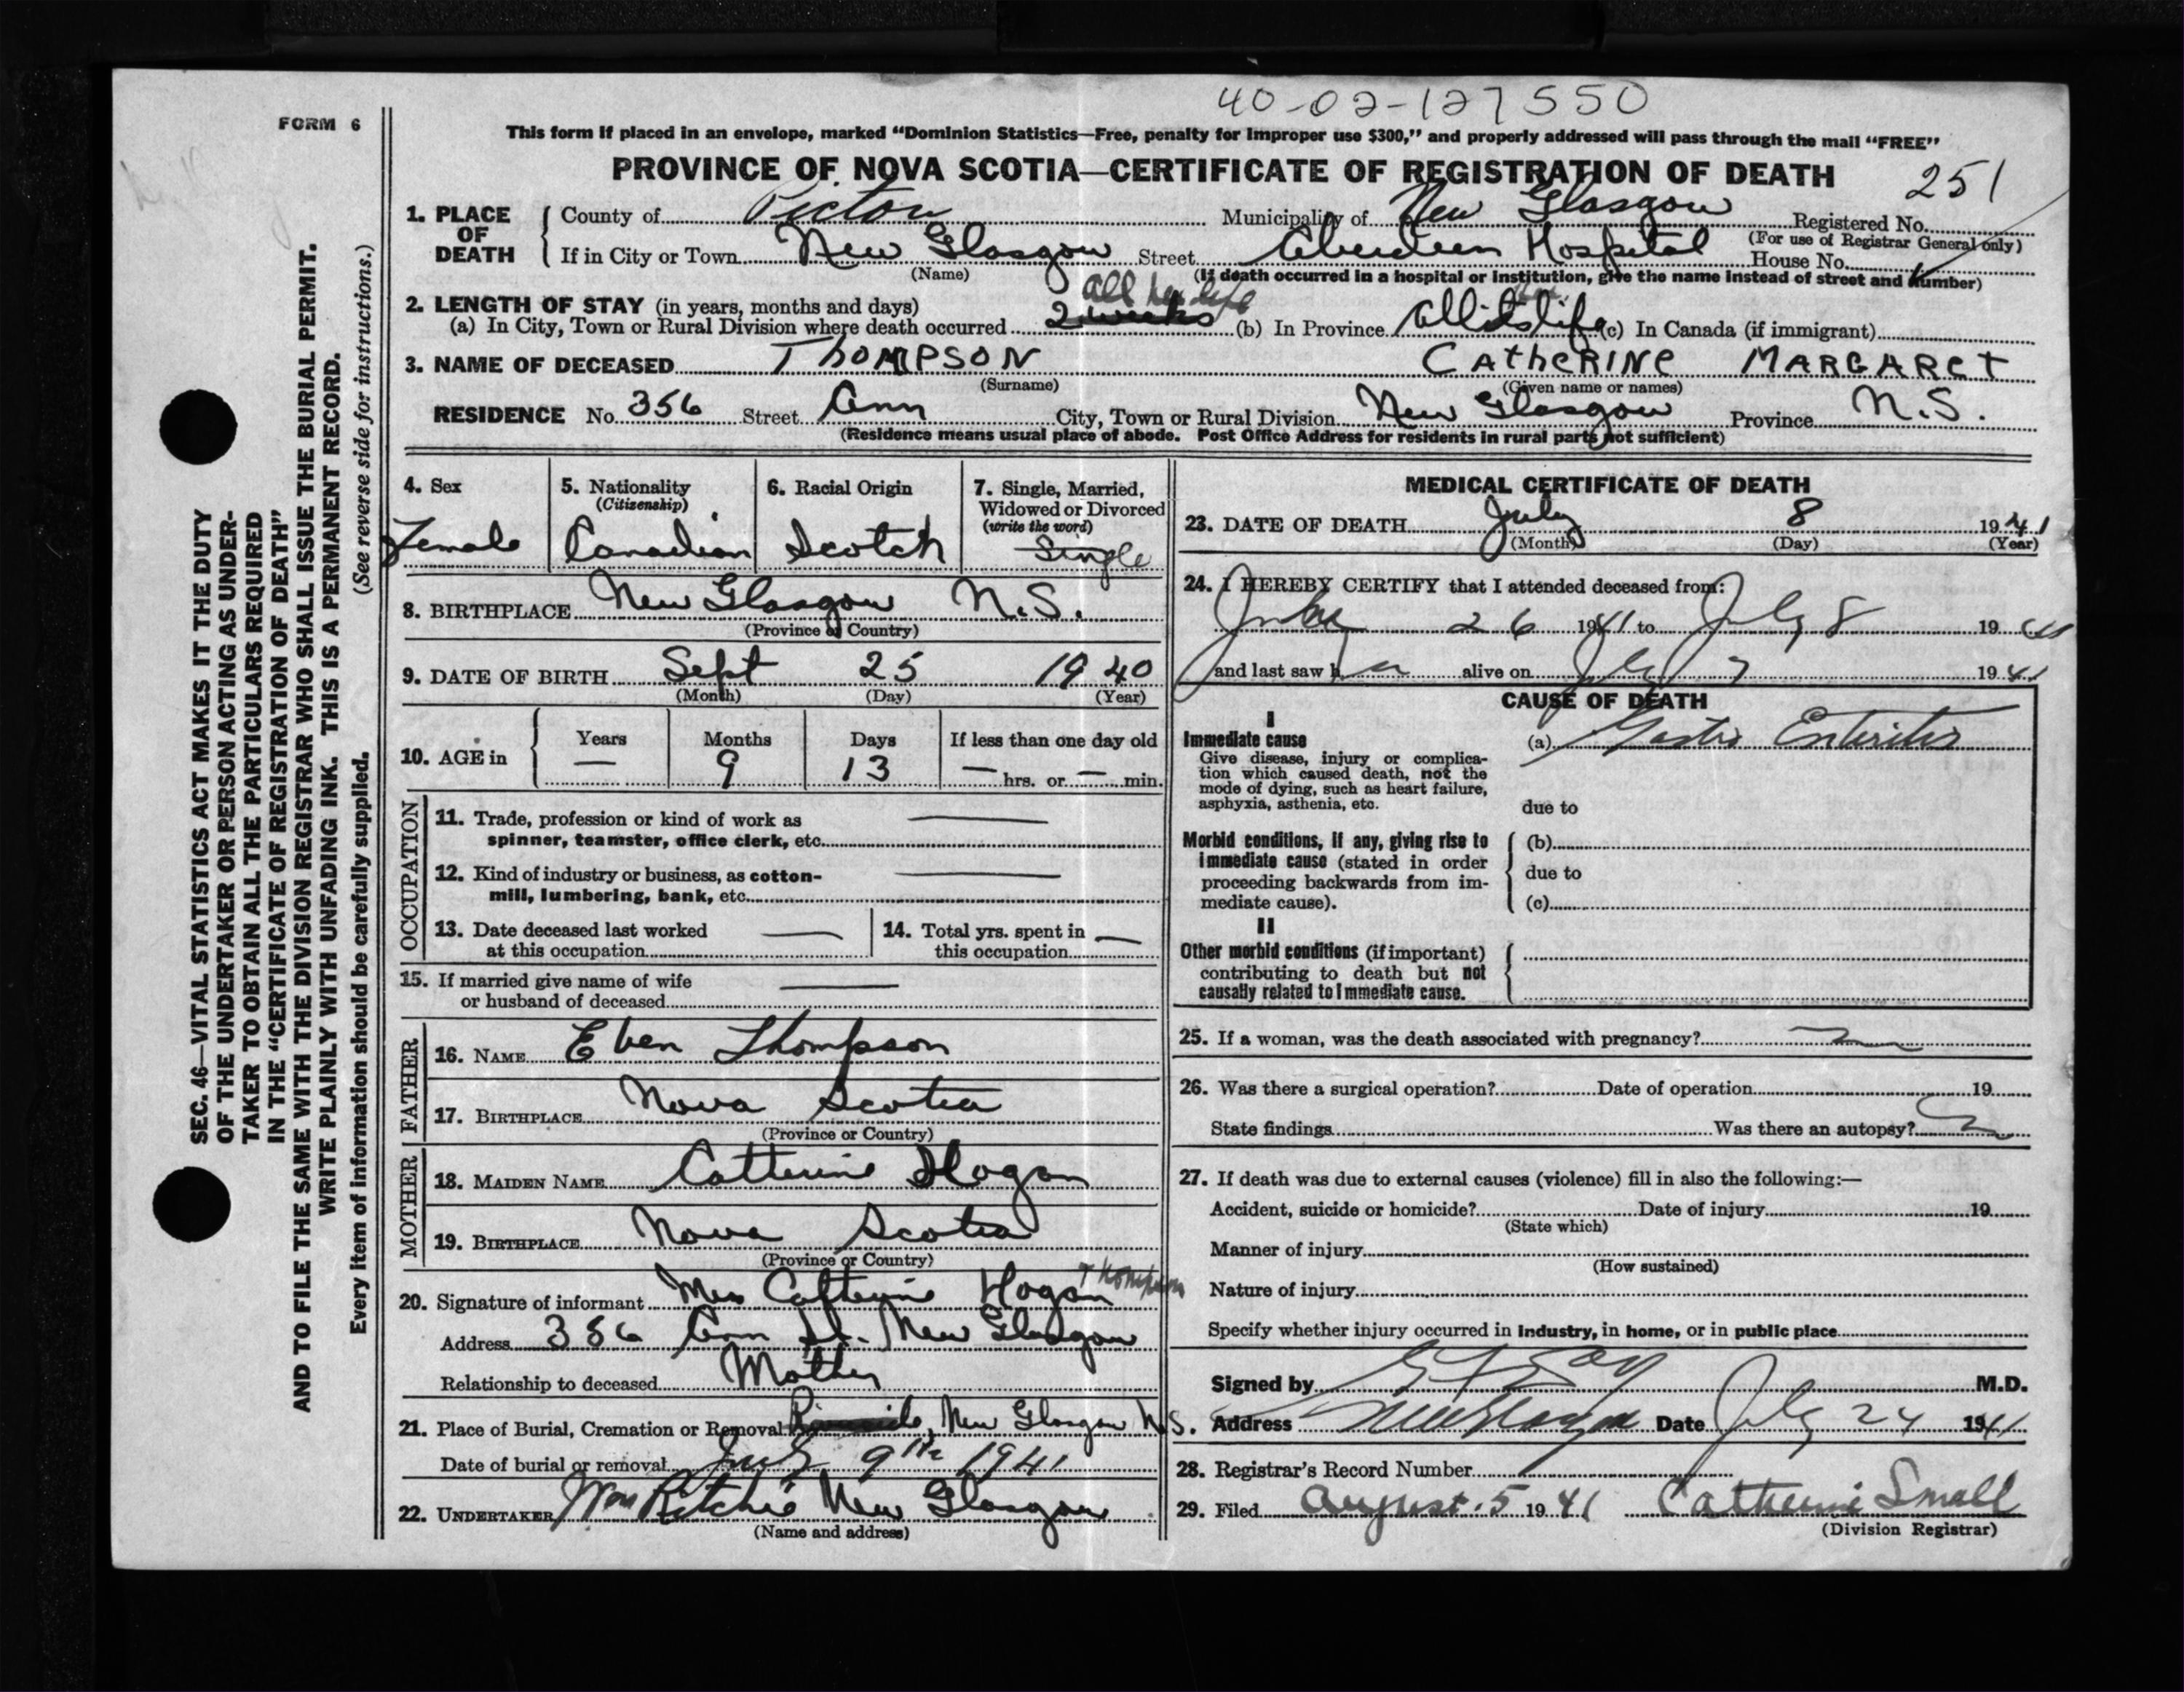 40-02-127550
FORM 6
This form if placed in an envelope, marked “Dominion Statistics—Free, penalty for improper use $300,” and properly addressed will pass through the mail “FREE”
PROVINCE OF NOVA SCOTIA—CERTIFICATE OF REGISTRATION OF DEATH
251
1. PLACE OF DEATH
County of Pictou Municipality of New Glasgow Registered No.
(For use of Registrar General only)
If in City or Town New Glasgow Street Aberdeen Hospital House No.
(Name) (If death occurred in a hospital or institution, give the name instead of street and number)
2. LENGTH OF STAY (in years, months and days) all her life
(a) In City, Town or Rural Division where death occurred 2 weeks (b) In Province all its life (c) In Canada (if immigrant)
3. NAME OF DECEASED THOMPSON CATHERINE MARGARET
(Surname) (Given name or names)
RESIDENCE No. 356 Street Ann City, Town or Rural Division New Glasgow Province N.S.
(Residence means usual place of abode. Post Office Address for residents in rural parts not sufficient)
4. Sex
Female
5. Nationality
(Citizenship)
Canadian
6. Racial Origin
Scotch
7. Single, Married, Widowed or Divorced
(write the word)
Single
8. BIRTHPLACE New Glasgow N.S.
(Province or Country)
9. DATE OF BIRTH Sept 25 1940
(Month) (Day) (Year)
10. AGE in
Years Months Days If less than one day old
— 9 13 — hrs. or — min.
OCCUPATION
11. Trade, profession or kind of work as
spinner, teamster, office clerk, etc. —
12. Kind of industry or business, as cotton-
mill, lumbering, bank, etc. —
13. Date deceased last worked
at this occupation —
14. Total yrs. spent in
this occupation —
15. If married give name of wife
or husband of deceased —
FATHER
16. NAME Eben Thompson
17. BIRTHPLACE Nova Scotia
(Province or Country)
MOTHER
18. MAIDEN NAME Catherine Hogan
19. BIRTHPLACE Nova Scotia
(Province or Country)
20. Signature of informant Mrs Catherine Hogan Thompson
Address 356 Ann St. New Glasgow
Relationship to deceased Mother
21. Place of Burial, Cremation or Removal Riverside, New Glasgow N.S.
Date of burial or removal July 9th 1941
22. UNDERTAKER Wm Ritchie New Glasgow
(Name and address)
MEDICAL CERTIFICATE OF DEATH
23. DATE OF DEATH July 8 1941
(Month) (Day) (Year)
24. I HEREBY CERTIFY that I attended deceased from:
26 1941 to July 8 1941
and last saw her alive on July 7 1941
CAUSE OF DEATH
I
Immediate cause
Give disease, injury or complica-
tion which caused death, not the
mode of dying, such as heart failure,
asphyxia, asthenia, etc.
(a) Gastro Enteritis
due to
Morbid conditions, if any, giving rise to
immediate cause (stated in order
proceeding backwards from im-
mediate cause).
(b)
due to
(c)
II
Other morbid conditions (if important)
contributing to death but not
causally related to immediate cause.
25. If a woman, was the death associated with pregnancy?
26. Was there a surgical operation? Date of operation 19
State findings Was there an autopsy?
27. If death was due to external causes (violence) fill in also the following:—
Accident, suicide or homicide? Date of injury 19
(State which)
Manner of injury
(How sustained)
Nature of injury
Specify whether injury occurred in industry, in home, or in public place
Signed by M.D.
Address New Glasgow Date July 24 1941
28. Registrar's Record Number
29. Filed August 5 1941 Catherine Small
(Division Registrar)
SEC. 46—VITAL STATISTICS ACT MAKES IT THE DUTY
OF THE UNDERTAKER OR PERSON ACTING AS UNDER-
TAKER TO OBTAIN ALL THE PARTICULARS REQUIRED
IN THE “CERTIFICATE OF REGISTRATION OF DEATH”
AND TO FILE THE SAME WITH THE DIVISION REGISTRAR WHO SHALL ISSUE THE BURIAL PERMIT.
WRITE PLAINLY WITH UNFADING INK. THIS IS A PERMANENT RECORD.
Every item of information should be carefully supplied. (See reverse side for instructions.)